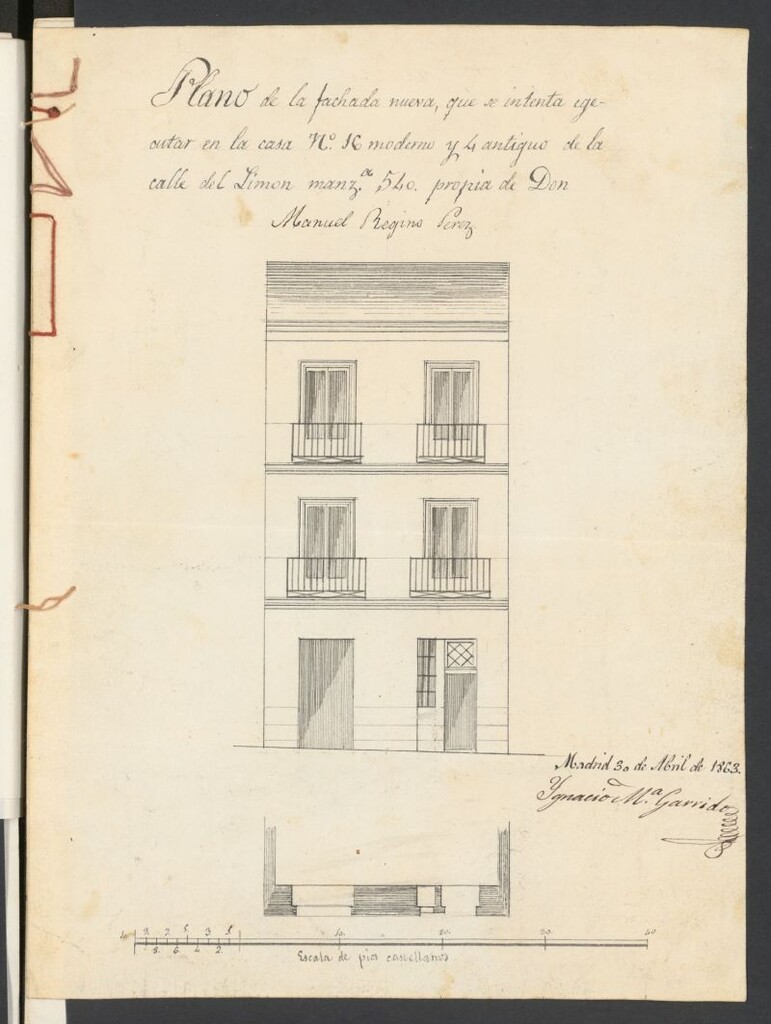 Plano de la fachada nueva, que se intenta ege-
cutar en la casa Nº. 16 moderno y 4 antiguo de la
calle del Limon manz.ª 540. propia de Don
Manuel Regino Perez
Madrid 30 de Abril de 1863.
Ygnacio M.ª Garrido
10. 20. 30. 40
Escala de pies castellanos